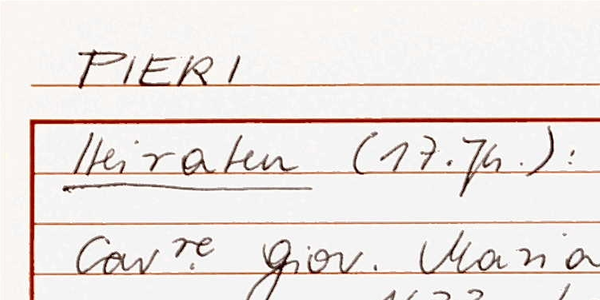 PIERI
Heiraten (17. Jh.):
Cav.re Giov. Maria